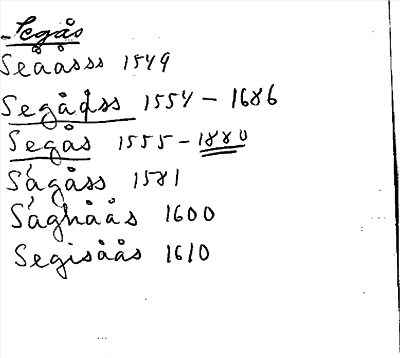 Segås
Seååsss 1549
Segådss 1554 - 1686
Segås 1555 - 1880
Ságåss 1581
Sághåås 1600
Segisåås 1610